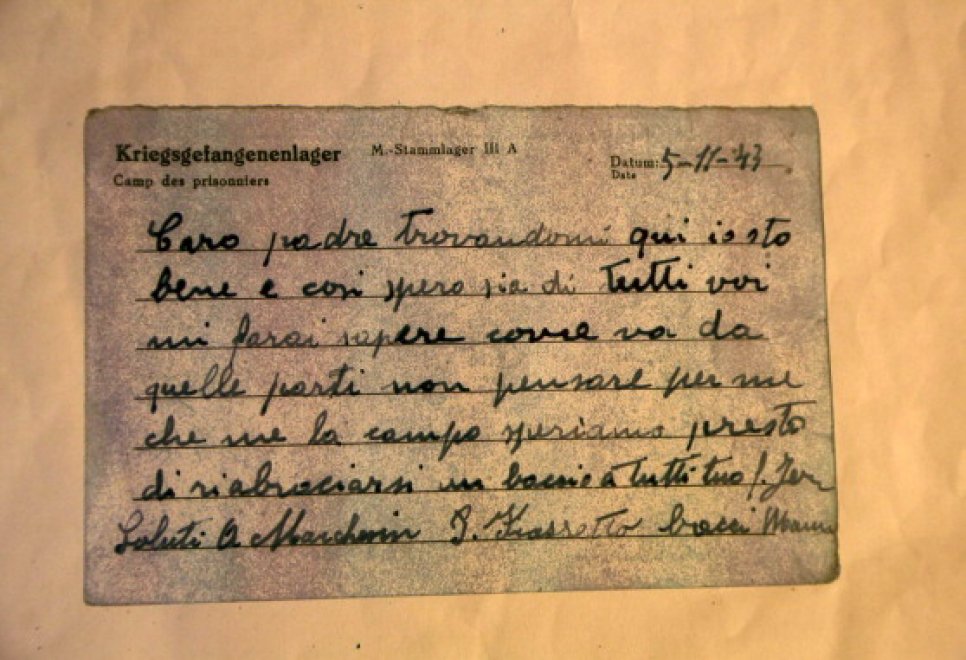 Kriegsgefangenenlager M.-Stammlager III A
Camp des prisonniers
Datum: 5-11-43
Date
Caro padre trovandomi qui io sto
bene e cosi spero sia di tutti voi
mi farai sapere come va da
quelle parti non pensare per me
che me la campo speriamo presto
di riabraciarsi un baccio a tutti tuo f.
Saluti A